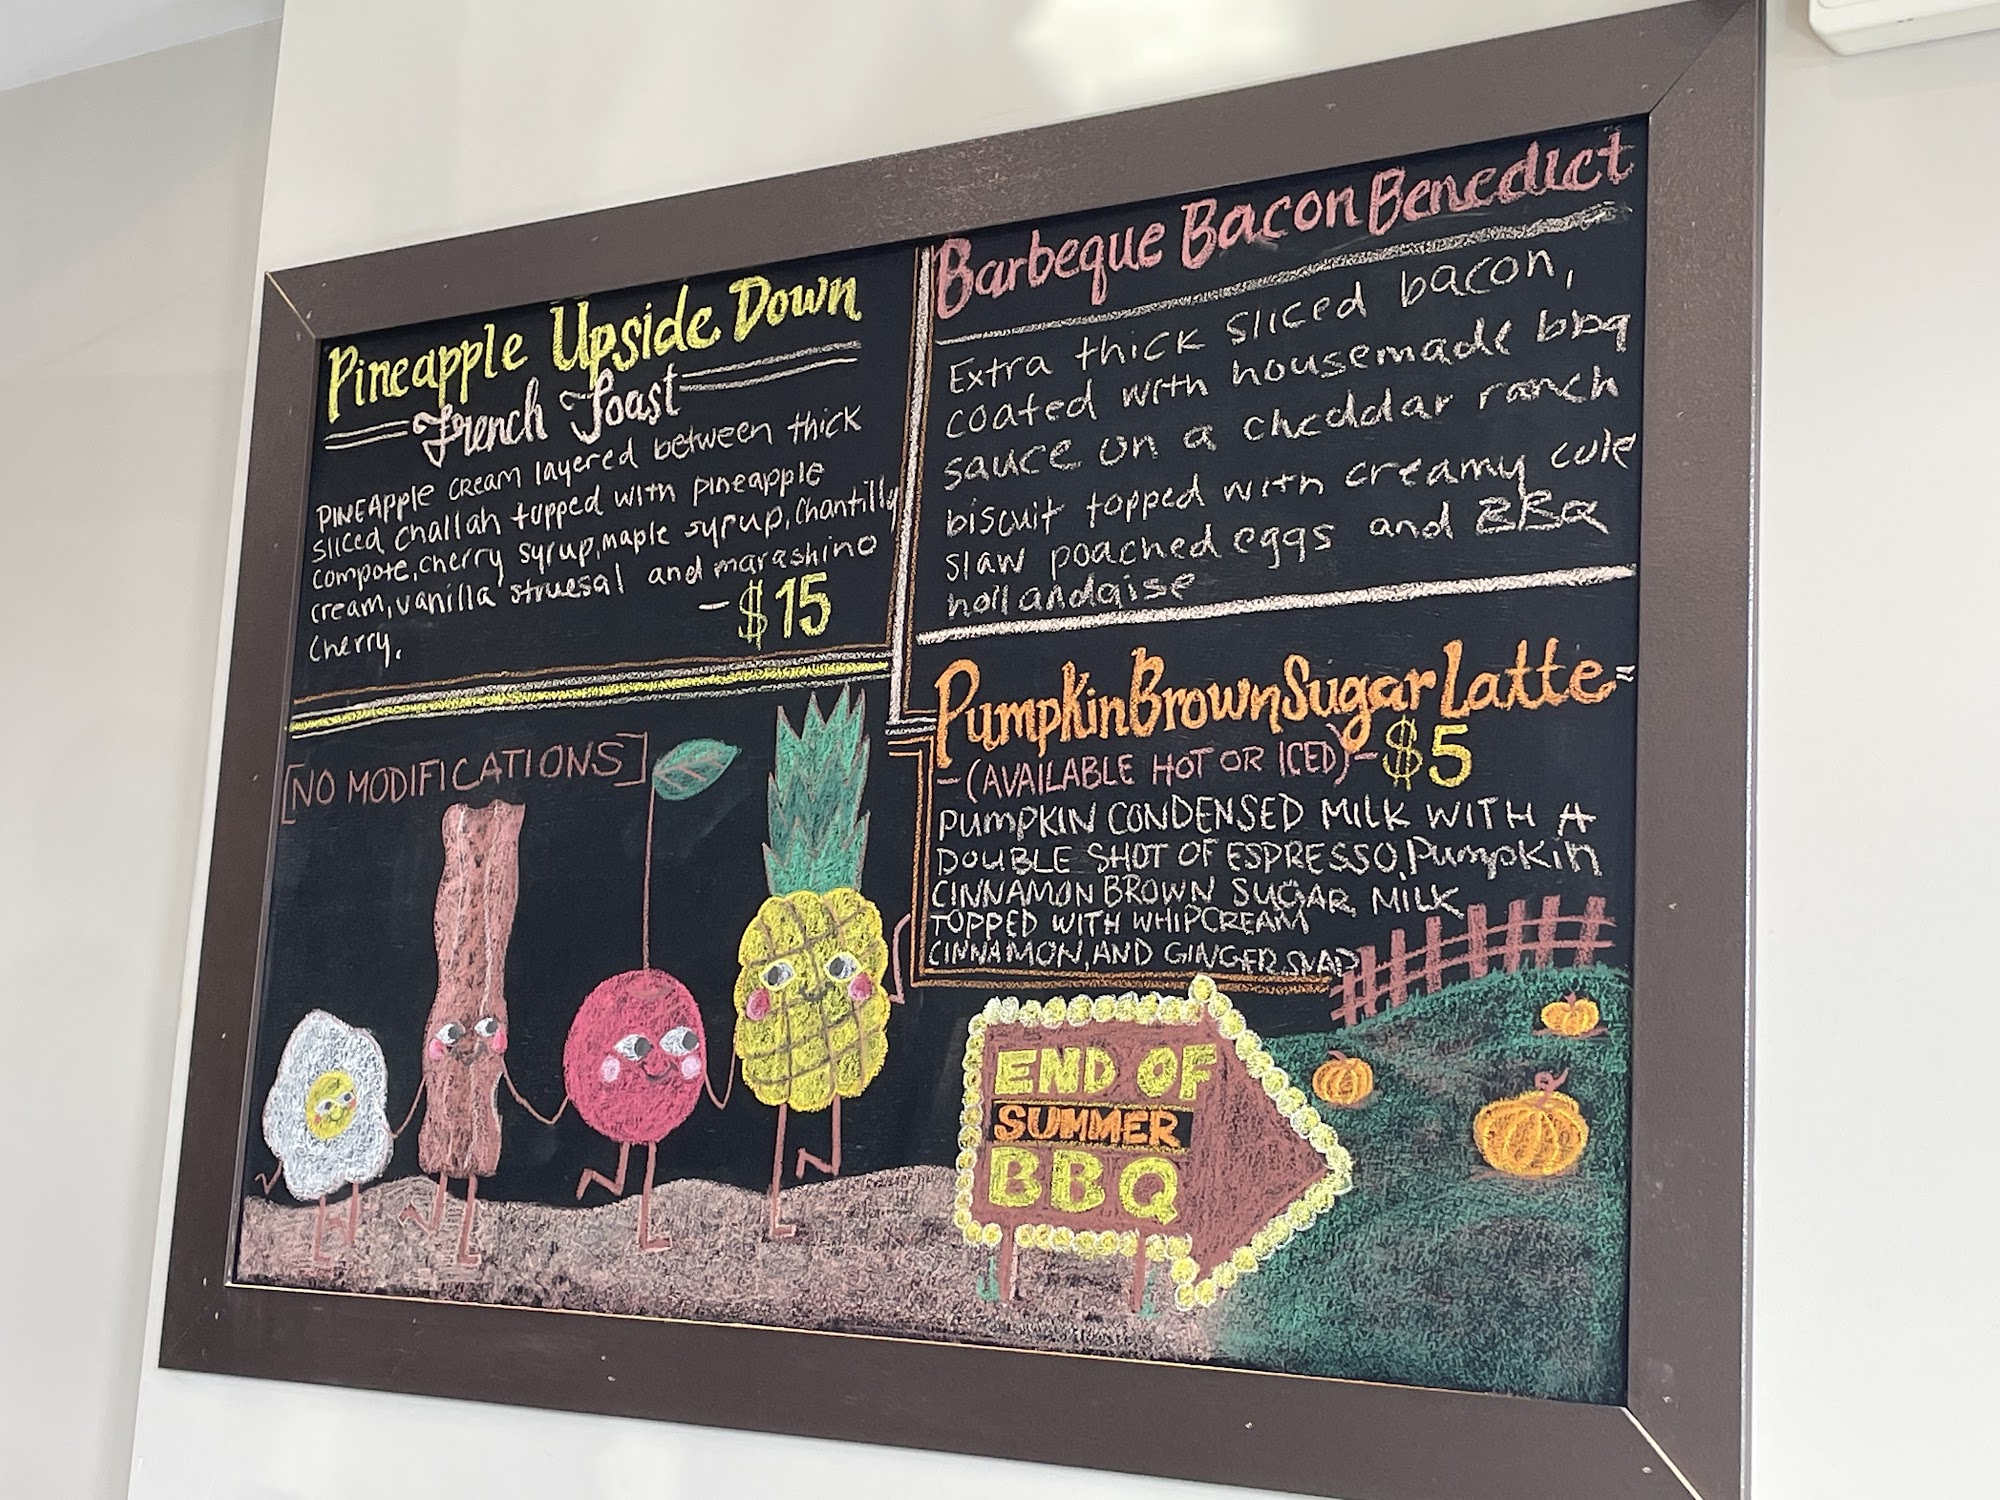 Pineapple Upside Down
French Toast
PINEApple cream layered between thick
sliced challah topped with pineapple
compote, cherry syrup, maple syrup, Chantilly
cream, vanilla struesal and marashino
Cherry.
- $15
[NO MODIFICATIONS]
Barbeque Bacon Benedict
Extra thick sliced bacon,
coated with housemade bbq
sauce on a cheddar ranch
biscuit topped with creamy cole
slaw poached eggs and BBQ
hollandaise
Pumpkin Brown Sugar Latte
- (AVAILABLE HOT OR ICED) - $5
PUMPKIN CONDENSED MILK WITH A
DOUBLE SHOT OF ESPRESSO, Pumpkin
CINNAMON BROWN SUGAR MILK
TOPPED WITH WHIPCREAM
CINNAMON, AND GINGER SNAP
END OF
SUMMER
BBQ